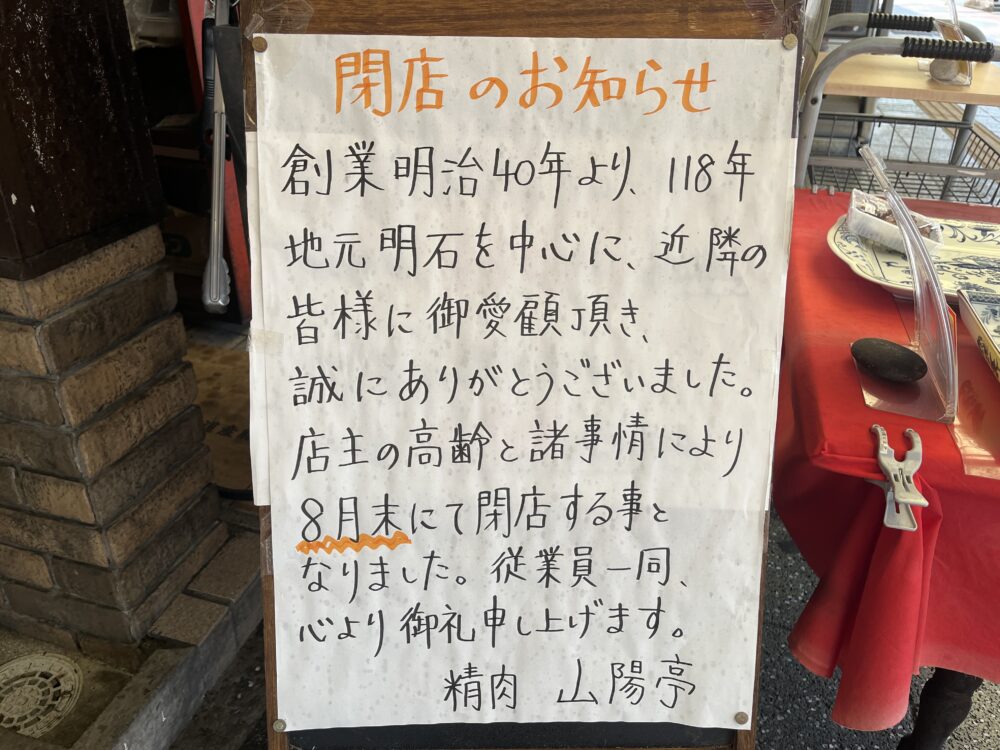 閉店のお知らせ
創業明治40年より、118年
地元明石を中心に、近隣の
皆様に御愛顧頂き、
誠にありがとうございました。
店主の高齢と諸事情により
8月末にて閉店する事と
なりました。従業員一同、
心より御礼申し上げます。
精肉 山陽亭